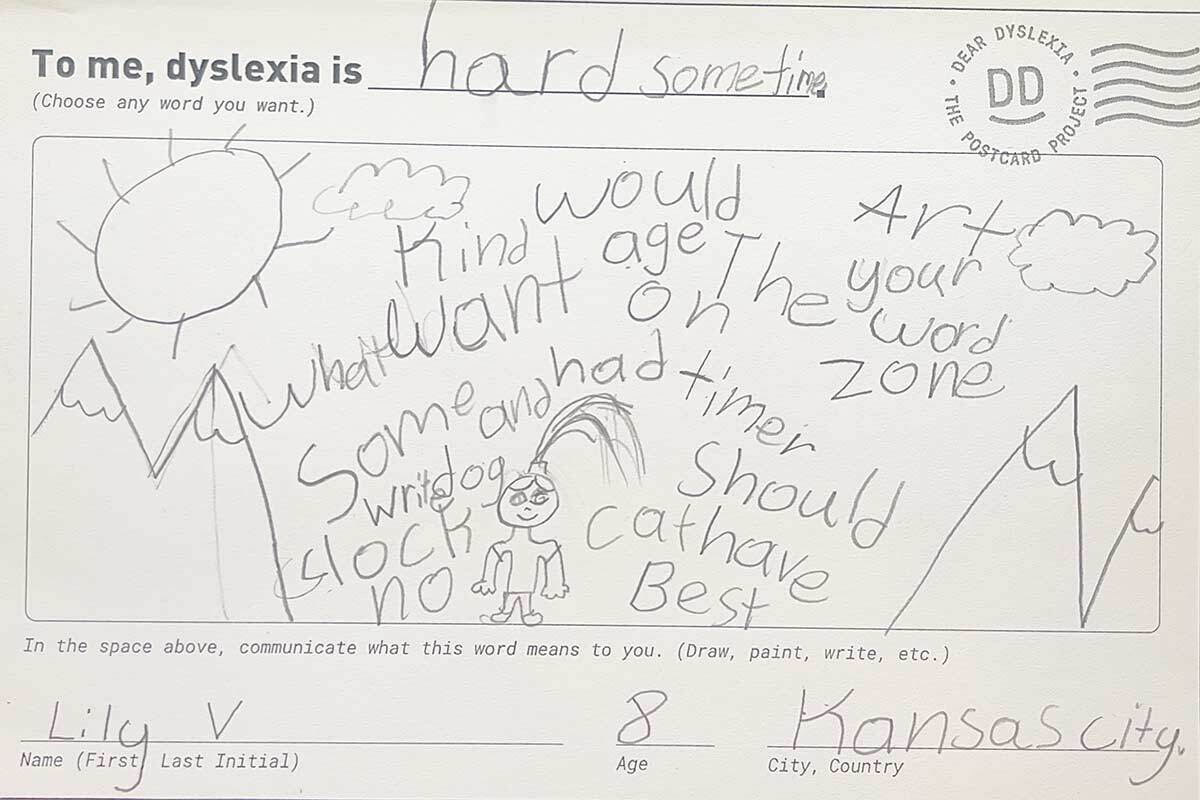 To me, dyslexia is hard sometime
(Choose any word you want.)
DEAR DYSLEXIA • THE POSTCARD PROJECT •
DD
would
Kind age The Art
what want on your
word
zone
Some and had timer
write dog Should
clock cat have
no Best
In the space above, communicate what this word means to you. (Draw, paint, write, etc.)
Lily V 8 Kansas city.
Name (First, Last Initial) Age City, Country